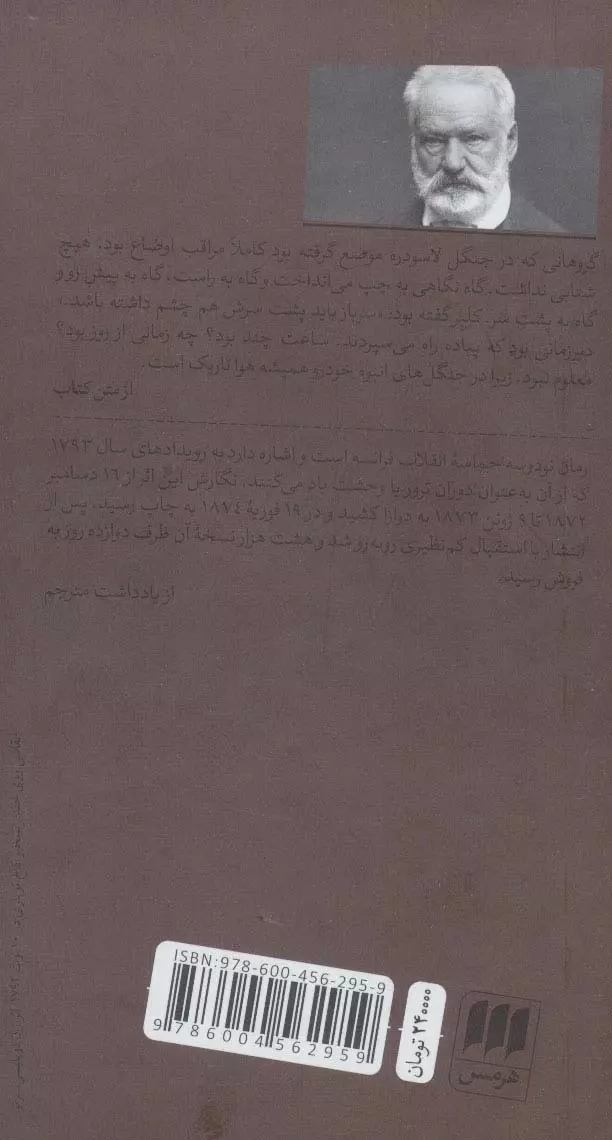 گروهانی که در جنگل لاسودره موضع گرفته بود کاملاً مراقب اوضاع بود. هیچ
شتابی نداشت. گاه نگاهی به چپ می‌انداخت و گاه به راست، گاه به پیش رو و
گاه به پشت سر. کلبر گفته بود: «سرباز باید پشت سرش هم چشم داشته باشد.»
دیرزمانی بود که پیاده راه می‌سپردند. ساعت چند بود؟ چه زمانی از روز بود؟
معلوم نبود، زیرا در جنگل‌های انبوه خودرو همیشه هوا تاریک است.
از متن کتاب
رمان نودوسه حماسهٔ انقلاب فرانسه است و اشاره دارد به رویدادهای سال ۱۷۹۳
که از آن به‌عنوان دوران ترور یا وحشت یاد می‌کنند. نگارش این اثر از ۱۶ دسامبر
۱۸۷۲ تا ۹ ژوئن ۱۸۷۳ به درازا کشید و در ۱۹ فوریهٔ ۱۸۷۴ به چاپ رسید. پس از
انتشار با استقبال کم‌نظیری روبه‌رو شد و هشت هزار نسخهٔ آن ظرف دوازده روز به
فروش رسید.
از یادداشت مترجم
ISBN: 978-600-456-295-9
9 786004 562959
۲۴۰۰۰۰ تومان
هرمس